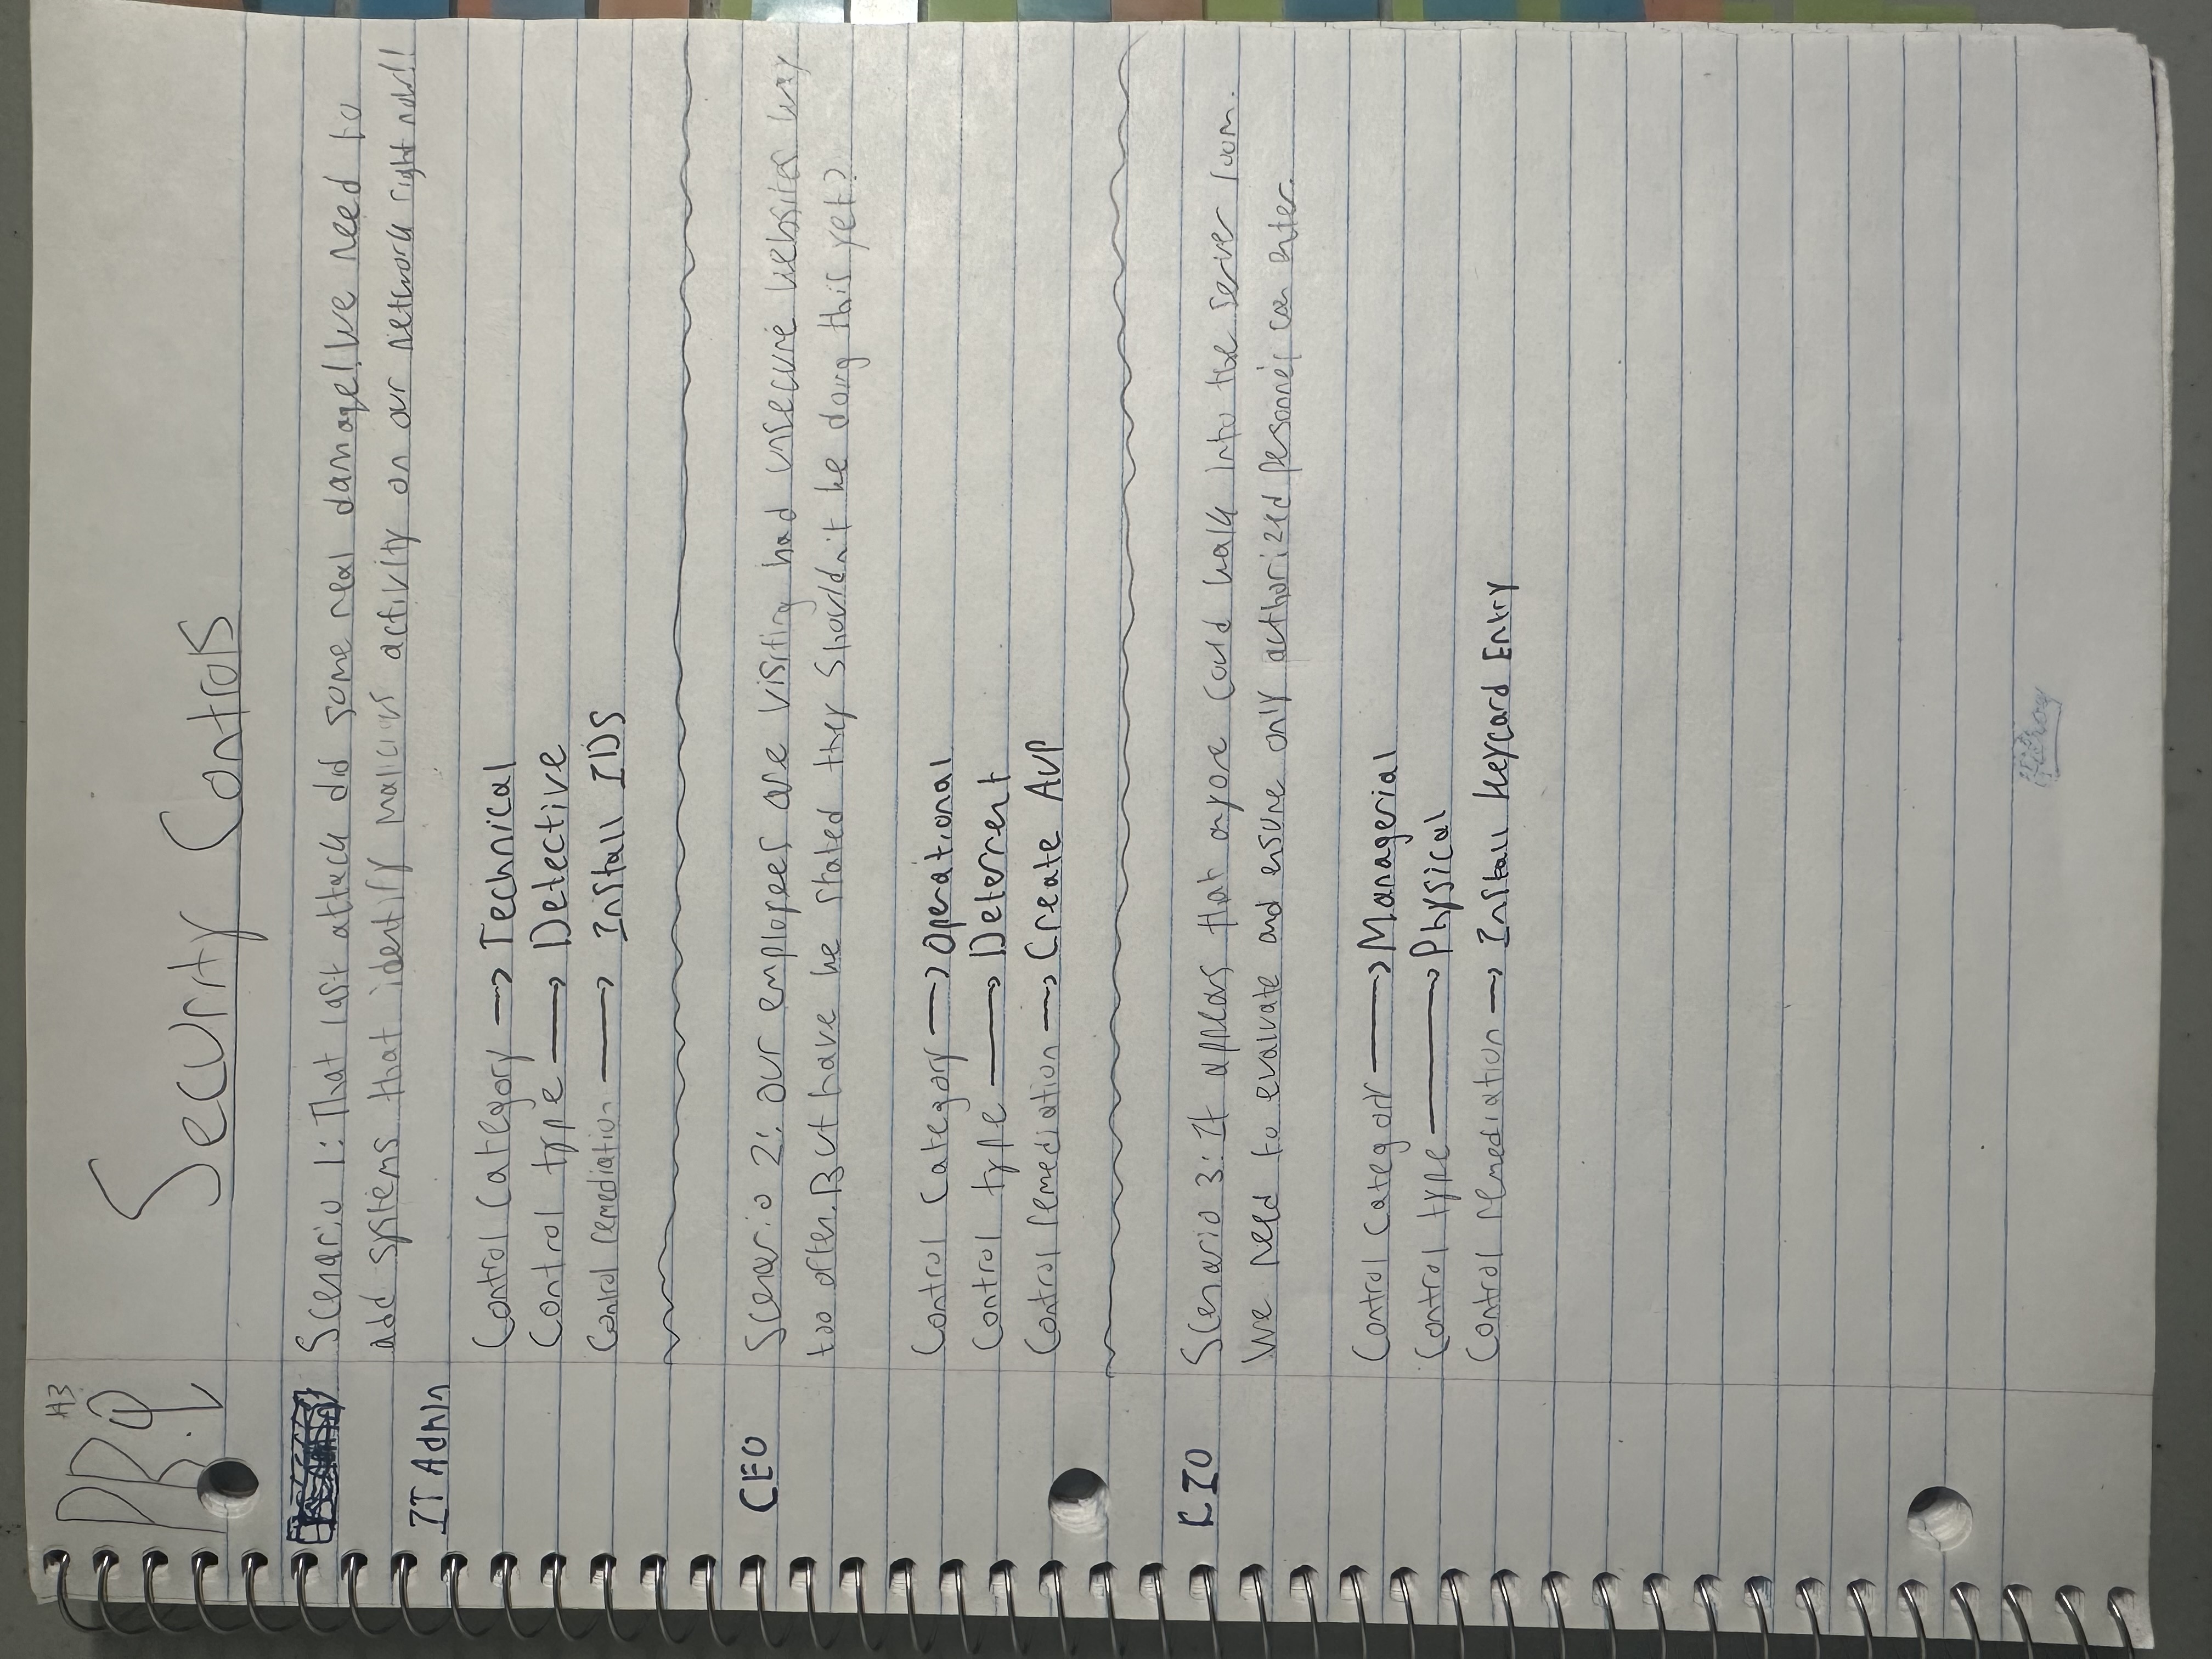 #3
P.B.Q
Security Controls
Scenario 1: That last attack did some real damage! We need to
add systems that identify malicious activity on our network right now!!
IT Admin
Control Category → Technical
Control type → Detective
Control remediation → Install IDS
CEO
Scenario 2: our employees are visiting bad unsecure websites way
too often. But have we stated they shouldn't be doing this yet?
Control Category → Operational
Control type → Deterrent
Control remediation → Create AUP
CIO
Scenario 3: It appears that anyone could walk into the server room.
We need to evaluate and ensure only authorized personnel can enter.
Control Category → Managerial
Control type → Physical
Control remediation → Install Keycard Entry